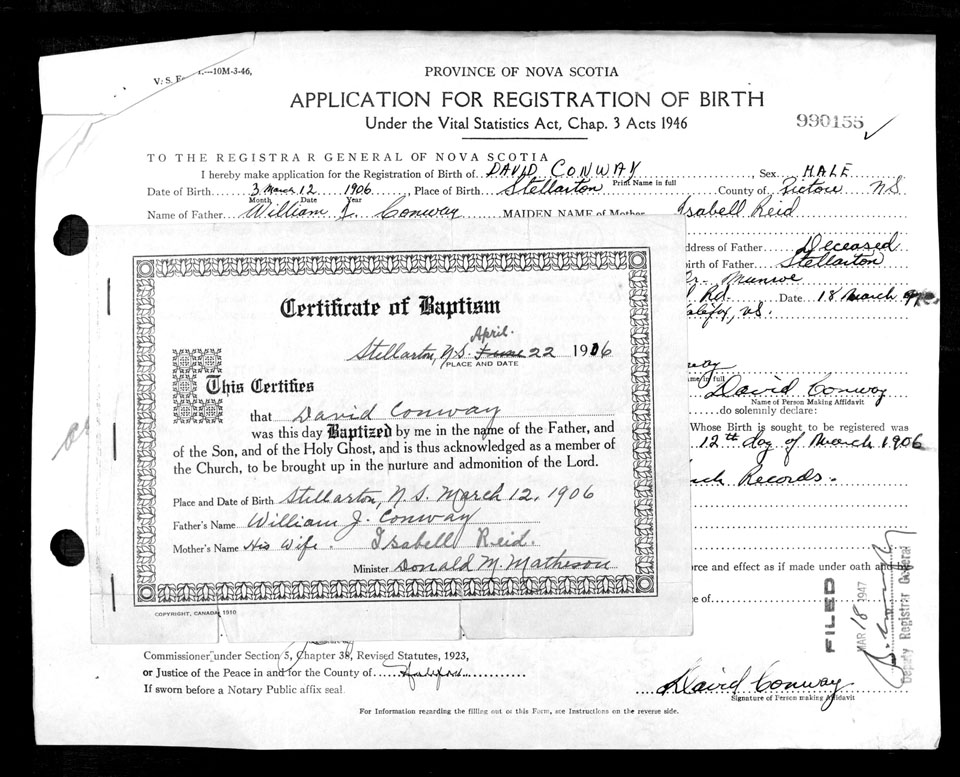 V. S. 10M-3-46,
PROVINCE OF NOVA SCOTIA
APPLICATION FOR REGISTRATION OF BIRTH
Under the Vital Statistics Act, Chap. 3 Acts 1946
990155
TO THE REGISTRAR GENERAL OF NOVA SCOTIA
I hereby make application for the Registration of Birth of DAVID CONWAY, Sex MALE
Print Name in full
Date of Birth 3 March 12 1906, Place of Birth Stellarton County of Pictou NS
Month Date Year
Name of Father William J. Conway MAIDEN NAME of Mother Isabell Reid
ddress of Father Deceased
irth of Father Stellarton
Munroe
Rd. Date 18 March
Halifax, N.S.
me in full
David Conway
Name of Person Making Affidavit
do solemnly declare:
Whose Birth is sought to be registered was
12th day of March 1906
Records.
rce and effect as if made under oath and
e of
FILED
MAR 18 1947
Deputy Registrar General
Certificate of Baptism
April.
Stellarton, N.S. June 22 1906
PLACE AND DATE
This Certifies
that David Conway
was this day Baptized by me in the name of the Father, and
of the Son, and of the Holy Ghost, and is thus acknowledged as a member of
the Church, to be brought up in the nurture and admonition of the Lord.
Place and Date of Birth Stellarton, N.S. March 12, 1906
Father's Name William J. Conway
Mother's Name His Wife. Isabell Reid.
Minister Donald M. Matheson
COPYRIGHT, CANADA, 1910
Commissioner under Section 5, Chapter 38, Revised Statutes, 1923,
or Justice of the Peace in and for the County of Halifax
If sworn before a Notary Public affix seal
David Conway
Signature of Person making Affidavit
For Information regarding the filling out of this Form, see Instructions on the reverse side.